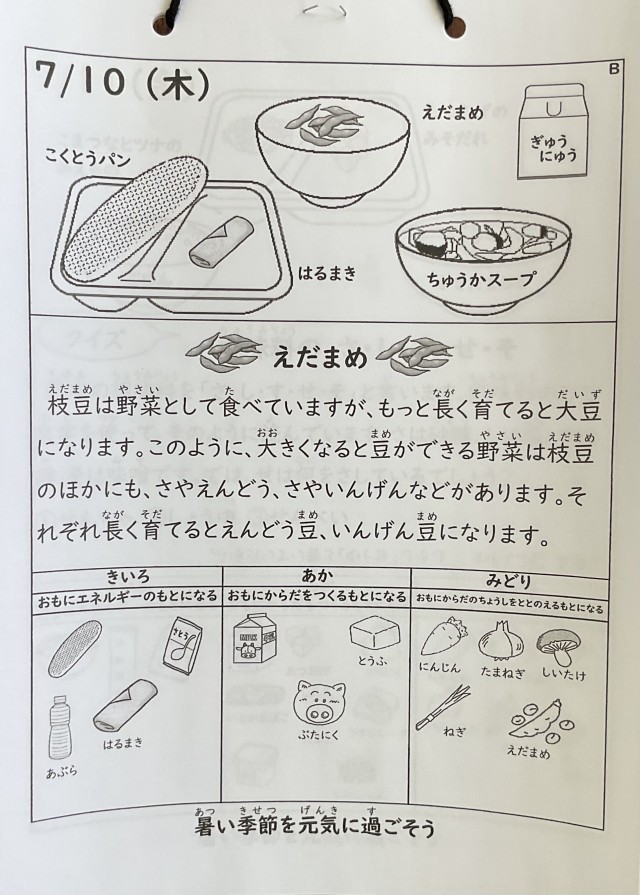 7/10（木）
B
えだまめ
ぎゅう
にゅう
こくとうパン
はるまき
ちゅうかスープ
えだまめ
枝豆は野菜として食べていますが、もっと長く育てると大豆
になります。このように、大きくなると豆ができる野菜は枝豆
のほかにも、さやえんどう、さやいんげんなどがあります。そ
れぞれ長く育てるとえんどう豆、いんげん豆になります。
きいろ
あか
みどり
おもにエネルギーのもとになる
おもにからだをつくるもとになる
おもにからだのちょうしをととのえるもとになる
さとう
はるまき
あぶら
MILK
とうふ
ぶたにく
にんじん
たまねぎ
しいたけ
ねぎ
えだまめ
暑い季節を元気に過ごそう